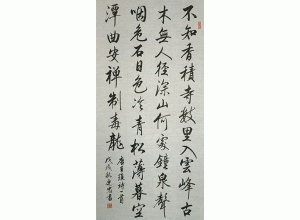 不知香積寺數里入雲峰古
木無人徑深山何處鐘泉聲
咽危石日色冷青松薄暮空
潭曲安禪制毒龍
唐王維詩一首
戊戌 書